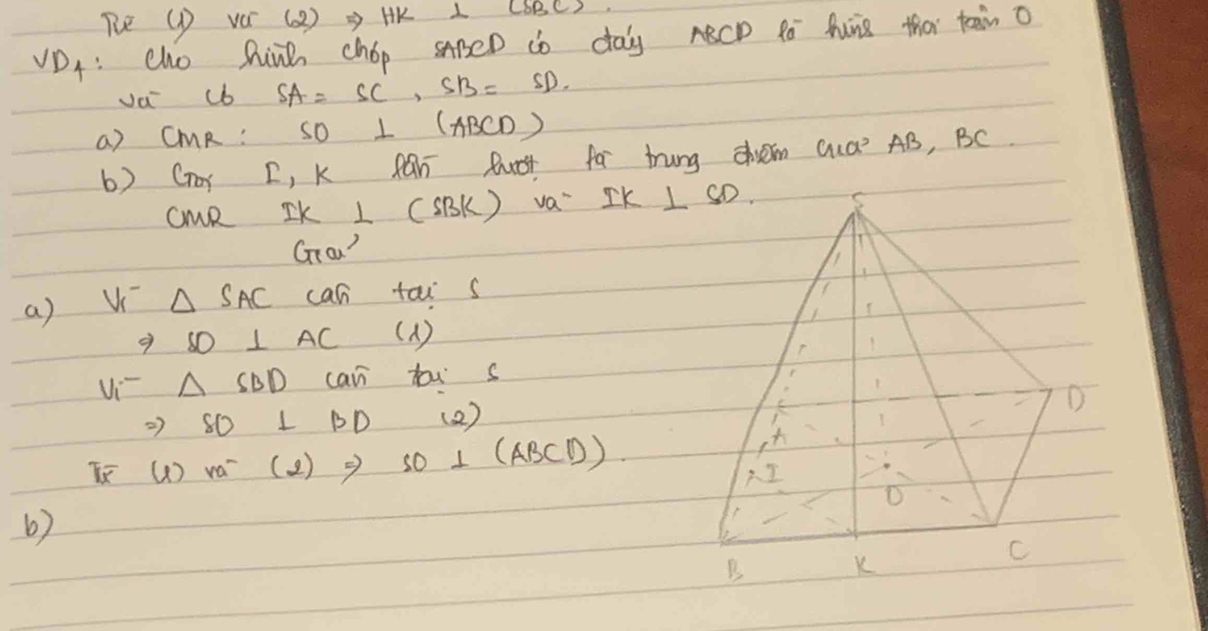 Từ (1) và (2) ⇒ HK ⊥ (SBC).
VD4: Cho hình chóp SABCD có đáy ABCD là hình thoi tâm O
và có SA = SC, SB = SD.
a) CMR: SO ⊥ (ABCD)
b) Gọi I, K lần lượt là trung điểm của AB, BC.
CMR IK ⊥ (SBK) và IK ⊥ SD.
Giải
a) Vì △ SAC cân tại S
⇒ SO ⊥ AC (1)
Vì △ SBD cân tại S
⇒ SO ⊥ BD (2)
Từ (1) và (2) ⇒ SO ⊥ (ABCD).
b)
S
D
A
I
O
B
K
C